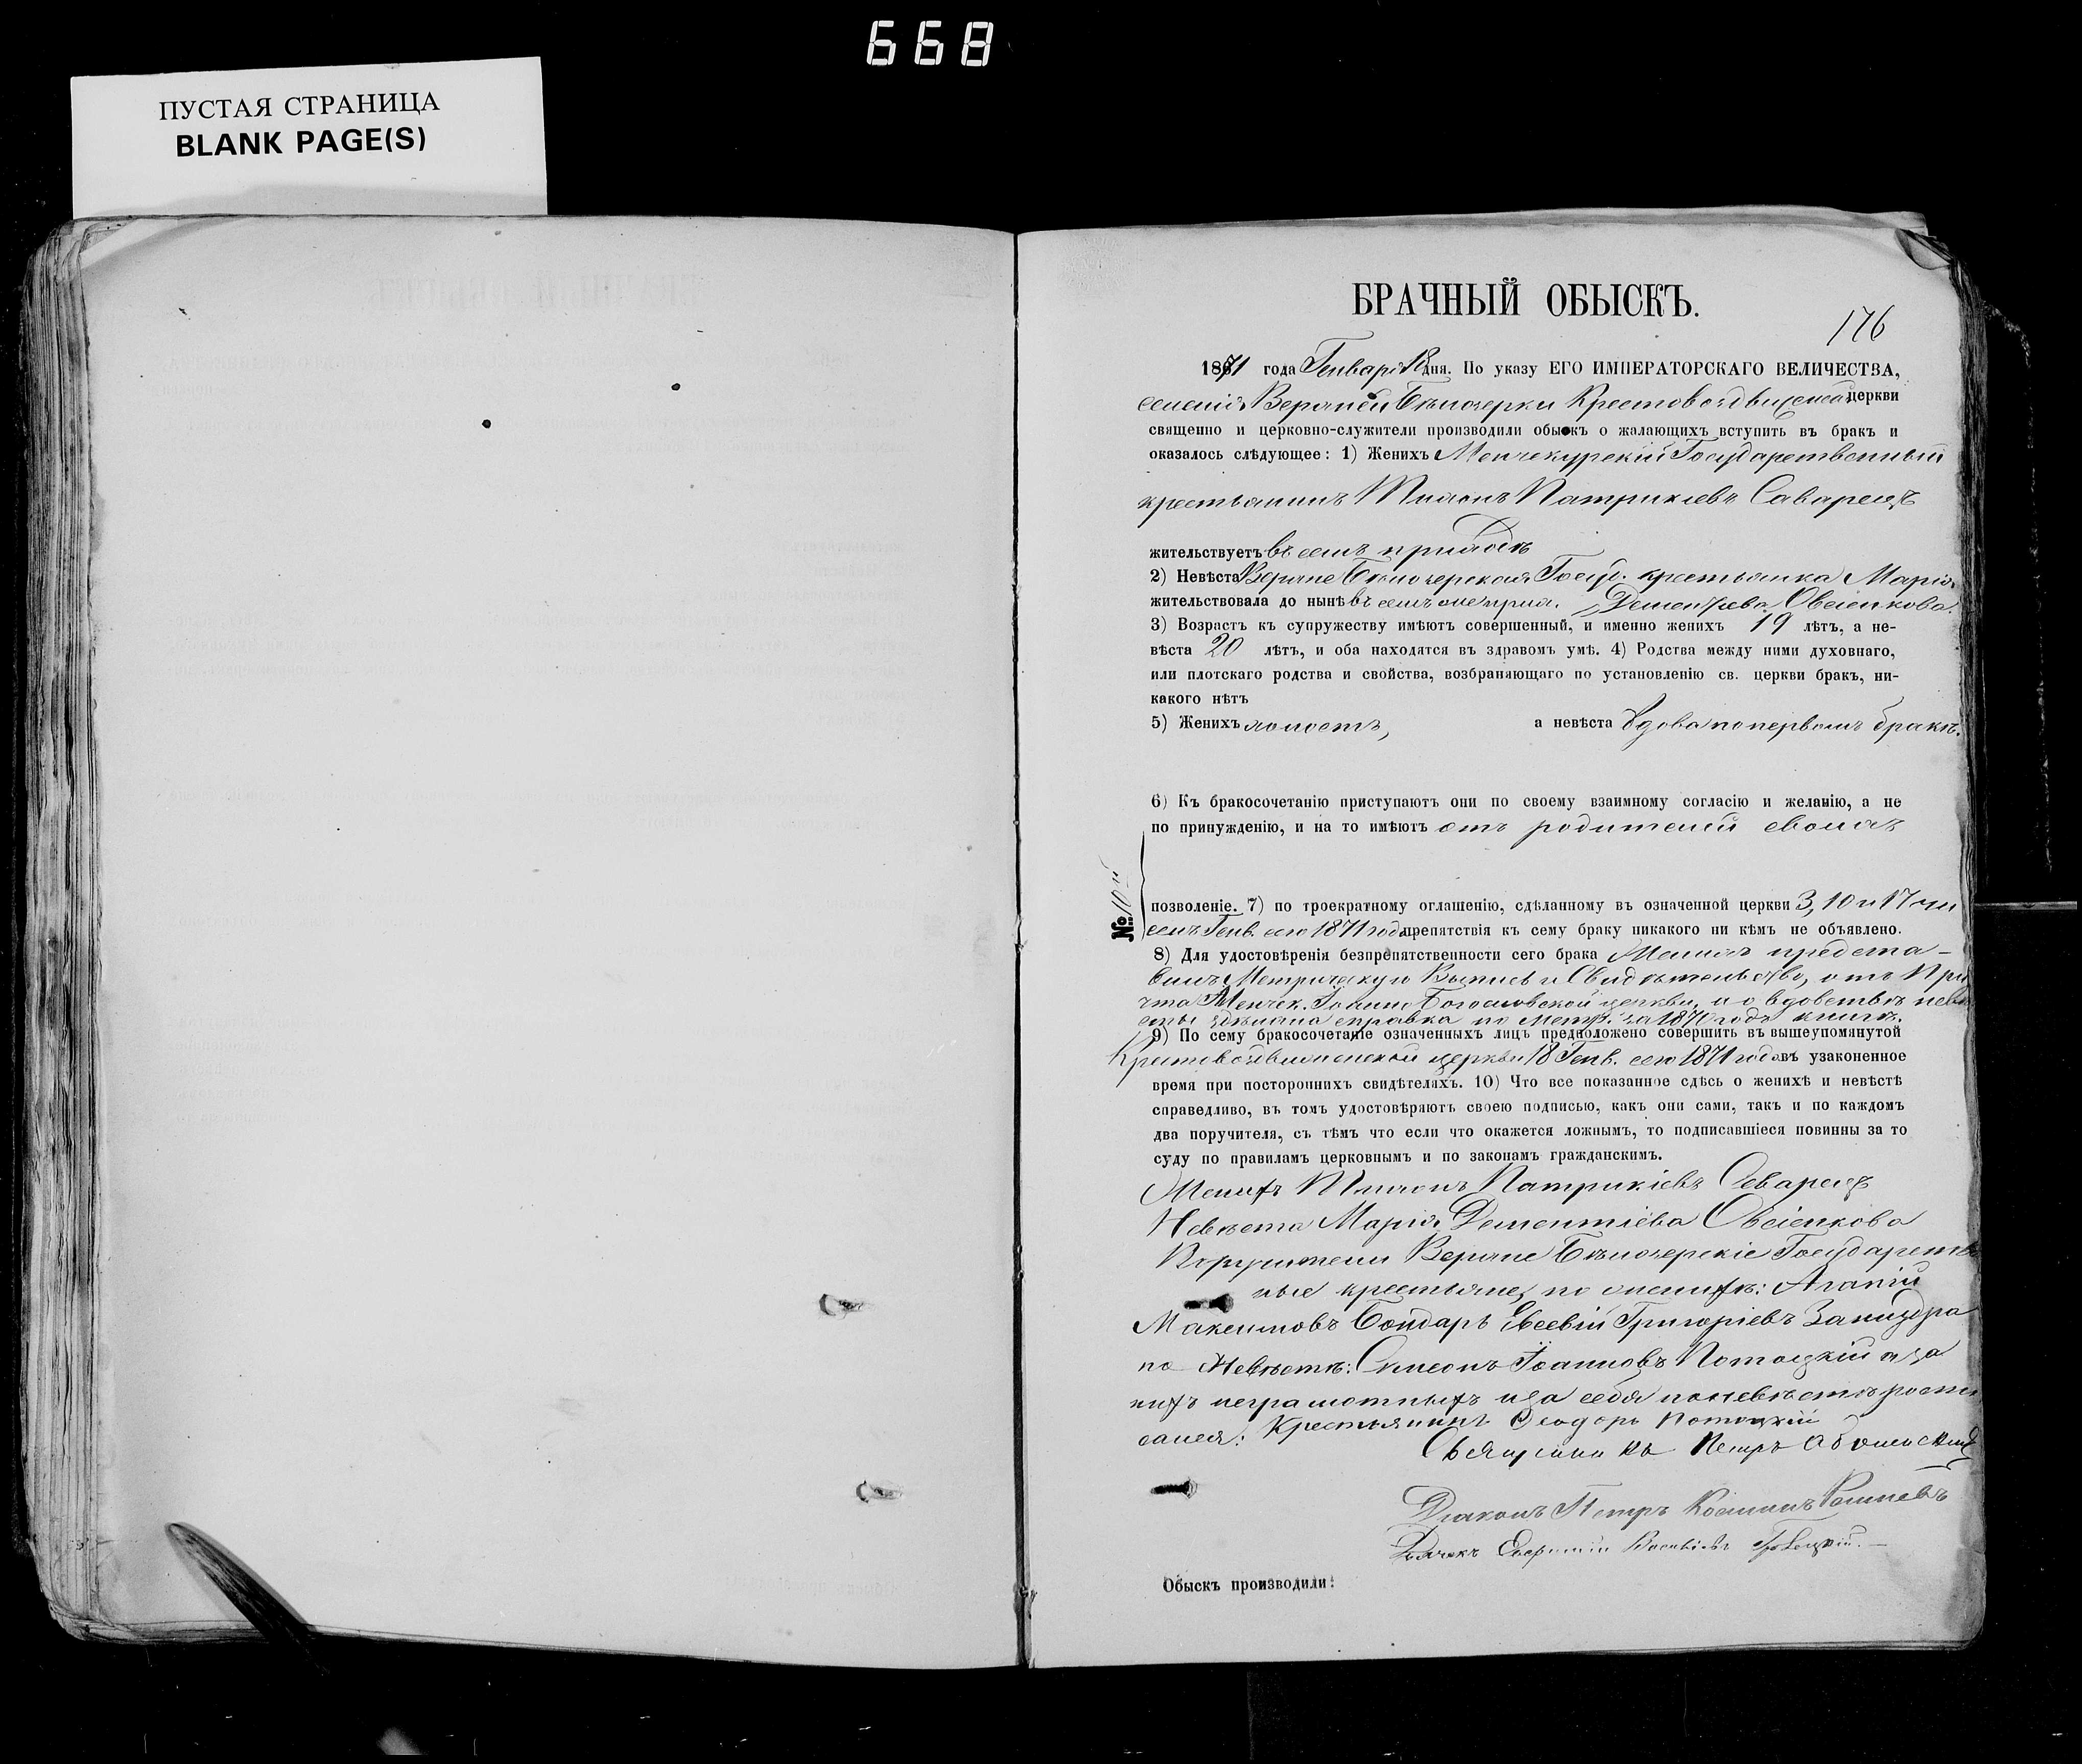 668
ПУСТАЯ СТРАНИЦА
BLANK PAGE(S)
БРАЧНЫЙ ОБЫСКЪ.
176
1871 года Генваря 18 дня. По указу ЕГО ИМПЕРАТОРСКАГО ВЕЛИЧЕСТВА,
селенія Верхней Бѣлозерки Крестовоздвиженской церкви
священно и церковно-служители производили обыскъ о жалающихъ вступить въ брак и
оказалось слѣдующее: 1) Женихъ Менчекурскій Государственный
крестьянинъ Патрикіевъ Саварецъ
жительствуетъ въ семъ приходѣ
2) Невѣста Верхне Бѣлозерская Госуд. крестьянка Марія
жительствовала до нынѣ въ семъ же прих. Дементіева Овсіенкова.
3) Возрастъ къ супружеству имѣютъ совершенный, и именно женихъ 19 лѣтъ, а не-
вѣста 20 лѣтъ, и оба находятся въ здравомъ умѣ. 4) Родства между ними духовнаго,
или плотскаго родства и свойства, возбраняющаго по установленію св. церкви брак, ни-
какого нѣтъ
5) Женихъ холостъ, а невѣста вдова по первомъ бракѣ.
6) Къ бракосочетанію приступаютъ они по своему взаимному согласію и желанію, а не
по принужденію, и на то имѣютъ отъ родителей своихъ
№ 10й
позволеніе. 7) по троекратному оглашенію, сдѣланному въ означенной церкви 3, 10 и 17 чи
селъ Генв. сего 1871 года препятствія къ сему браку никакого ни кѣмъ не объявлено.
8) Для удостовѣренія безпрепятственности сего брака Женихъ предста-
вилъ Метрическую Выпись и Свидѣтельство, отъ При
чта Менчек. Іоанно Богословской церкви, а о вдовствѣ невѣ
сты здѣлана справка по Метр. за 1870 годъ книгѣ.
9) По сему бракосочетаніе означенныхъ лицъ предположено совершить въ вышеупомянутой
Крестовоздвиженской церкви 18 Генв. сего 1871 года въ узаконенное
время при постороннихъ свидѣтеляхъ. 10) Что все показанное сдѣсь о женихѣ и невѣстѣ
справедливо, въ томъ удостовѣряютъ своею подписью, какъ они сами, такъ и по каждомъ
два поручителя, съ тѣмъ что если что окажется ложнымъ, то подписавшіеся повинны за то
суду по правиламъ церковнымъ и по законамъ гражданскимъ.
Женихъ Патрикіевъ Саварецъ
Невѣста Марія Дементіева Овсіенкова
Поручители Верхне Бѣлозерскіе Государствен
ные крестьяне, по женихѣ: Агапій
Максимовъ Бондарь Евсевій Григоріевъ Заниздра
по Невѣстѣ: Симеонъ Іоанновъ Потоцкій а за
нихъ неграмотныхъ и за себя по невѣстѣ роспи
сался: Крестьянинъ Ѳеодоръ Потоцкій
Священникъ Петръ
Діаконъ Петръ Косминъ
Дьячекъ
Обыскъ производили: